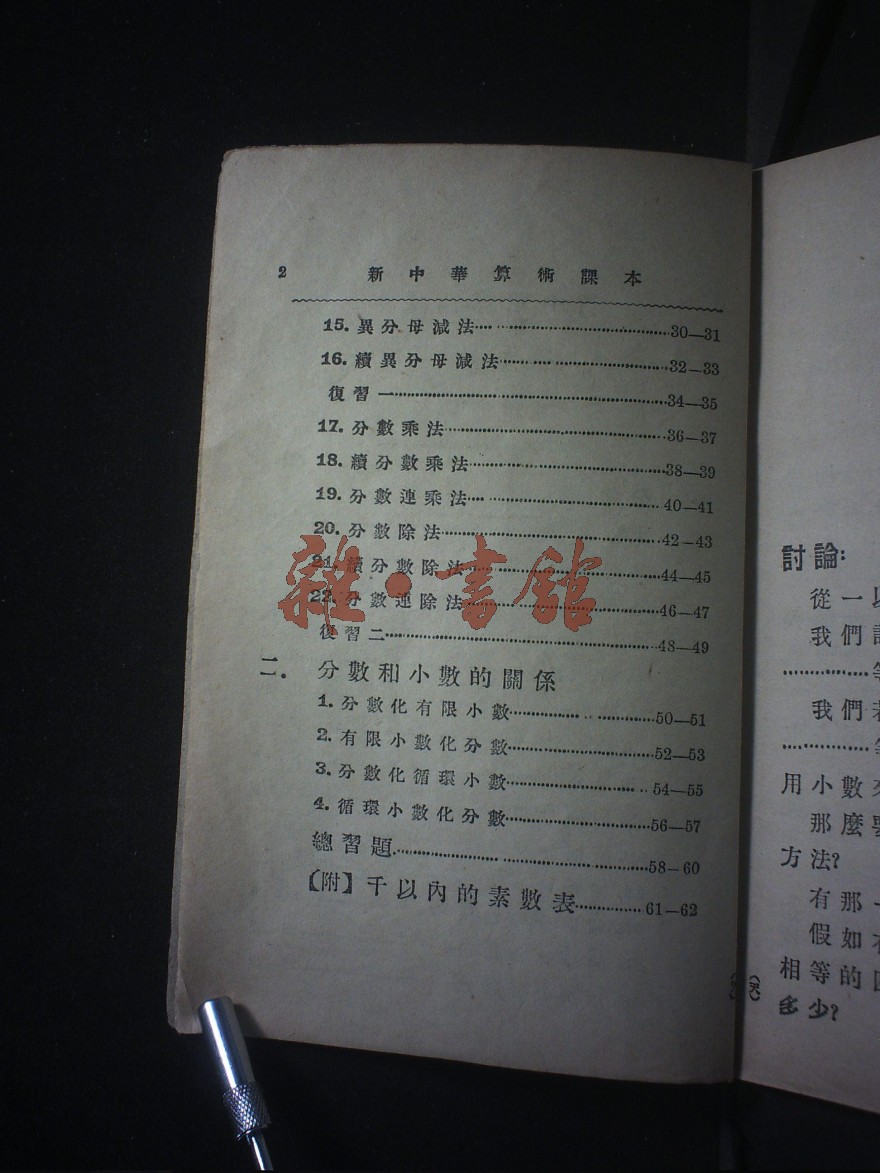 2 新中華算術課本
15. 異分母減法 30—31
16. 續異分母減法 32—33
復習一 34—35
17. 分數乘法 36—37
18. 續分數乘法 38—39
19. 分數連乘法 40—41
20. 分數除法 42—43
21. 續分數除法 44—45
22. 分數連除法 46—47
復習二 48—49
二. 分數和小數的關係
1. 分數化有限小數 50—51
2. 有限小數化分數 52—53
3. 分數化循環小數 54—55
4. 循環小數化分數 56—57
總習題 58—60
【附】千以內的素數表 61—62
雜·書館
討論:
從一以
我們
我們
用小數
那麼要
方法?
有那
假如
相等的
多少?